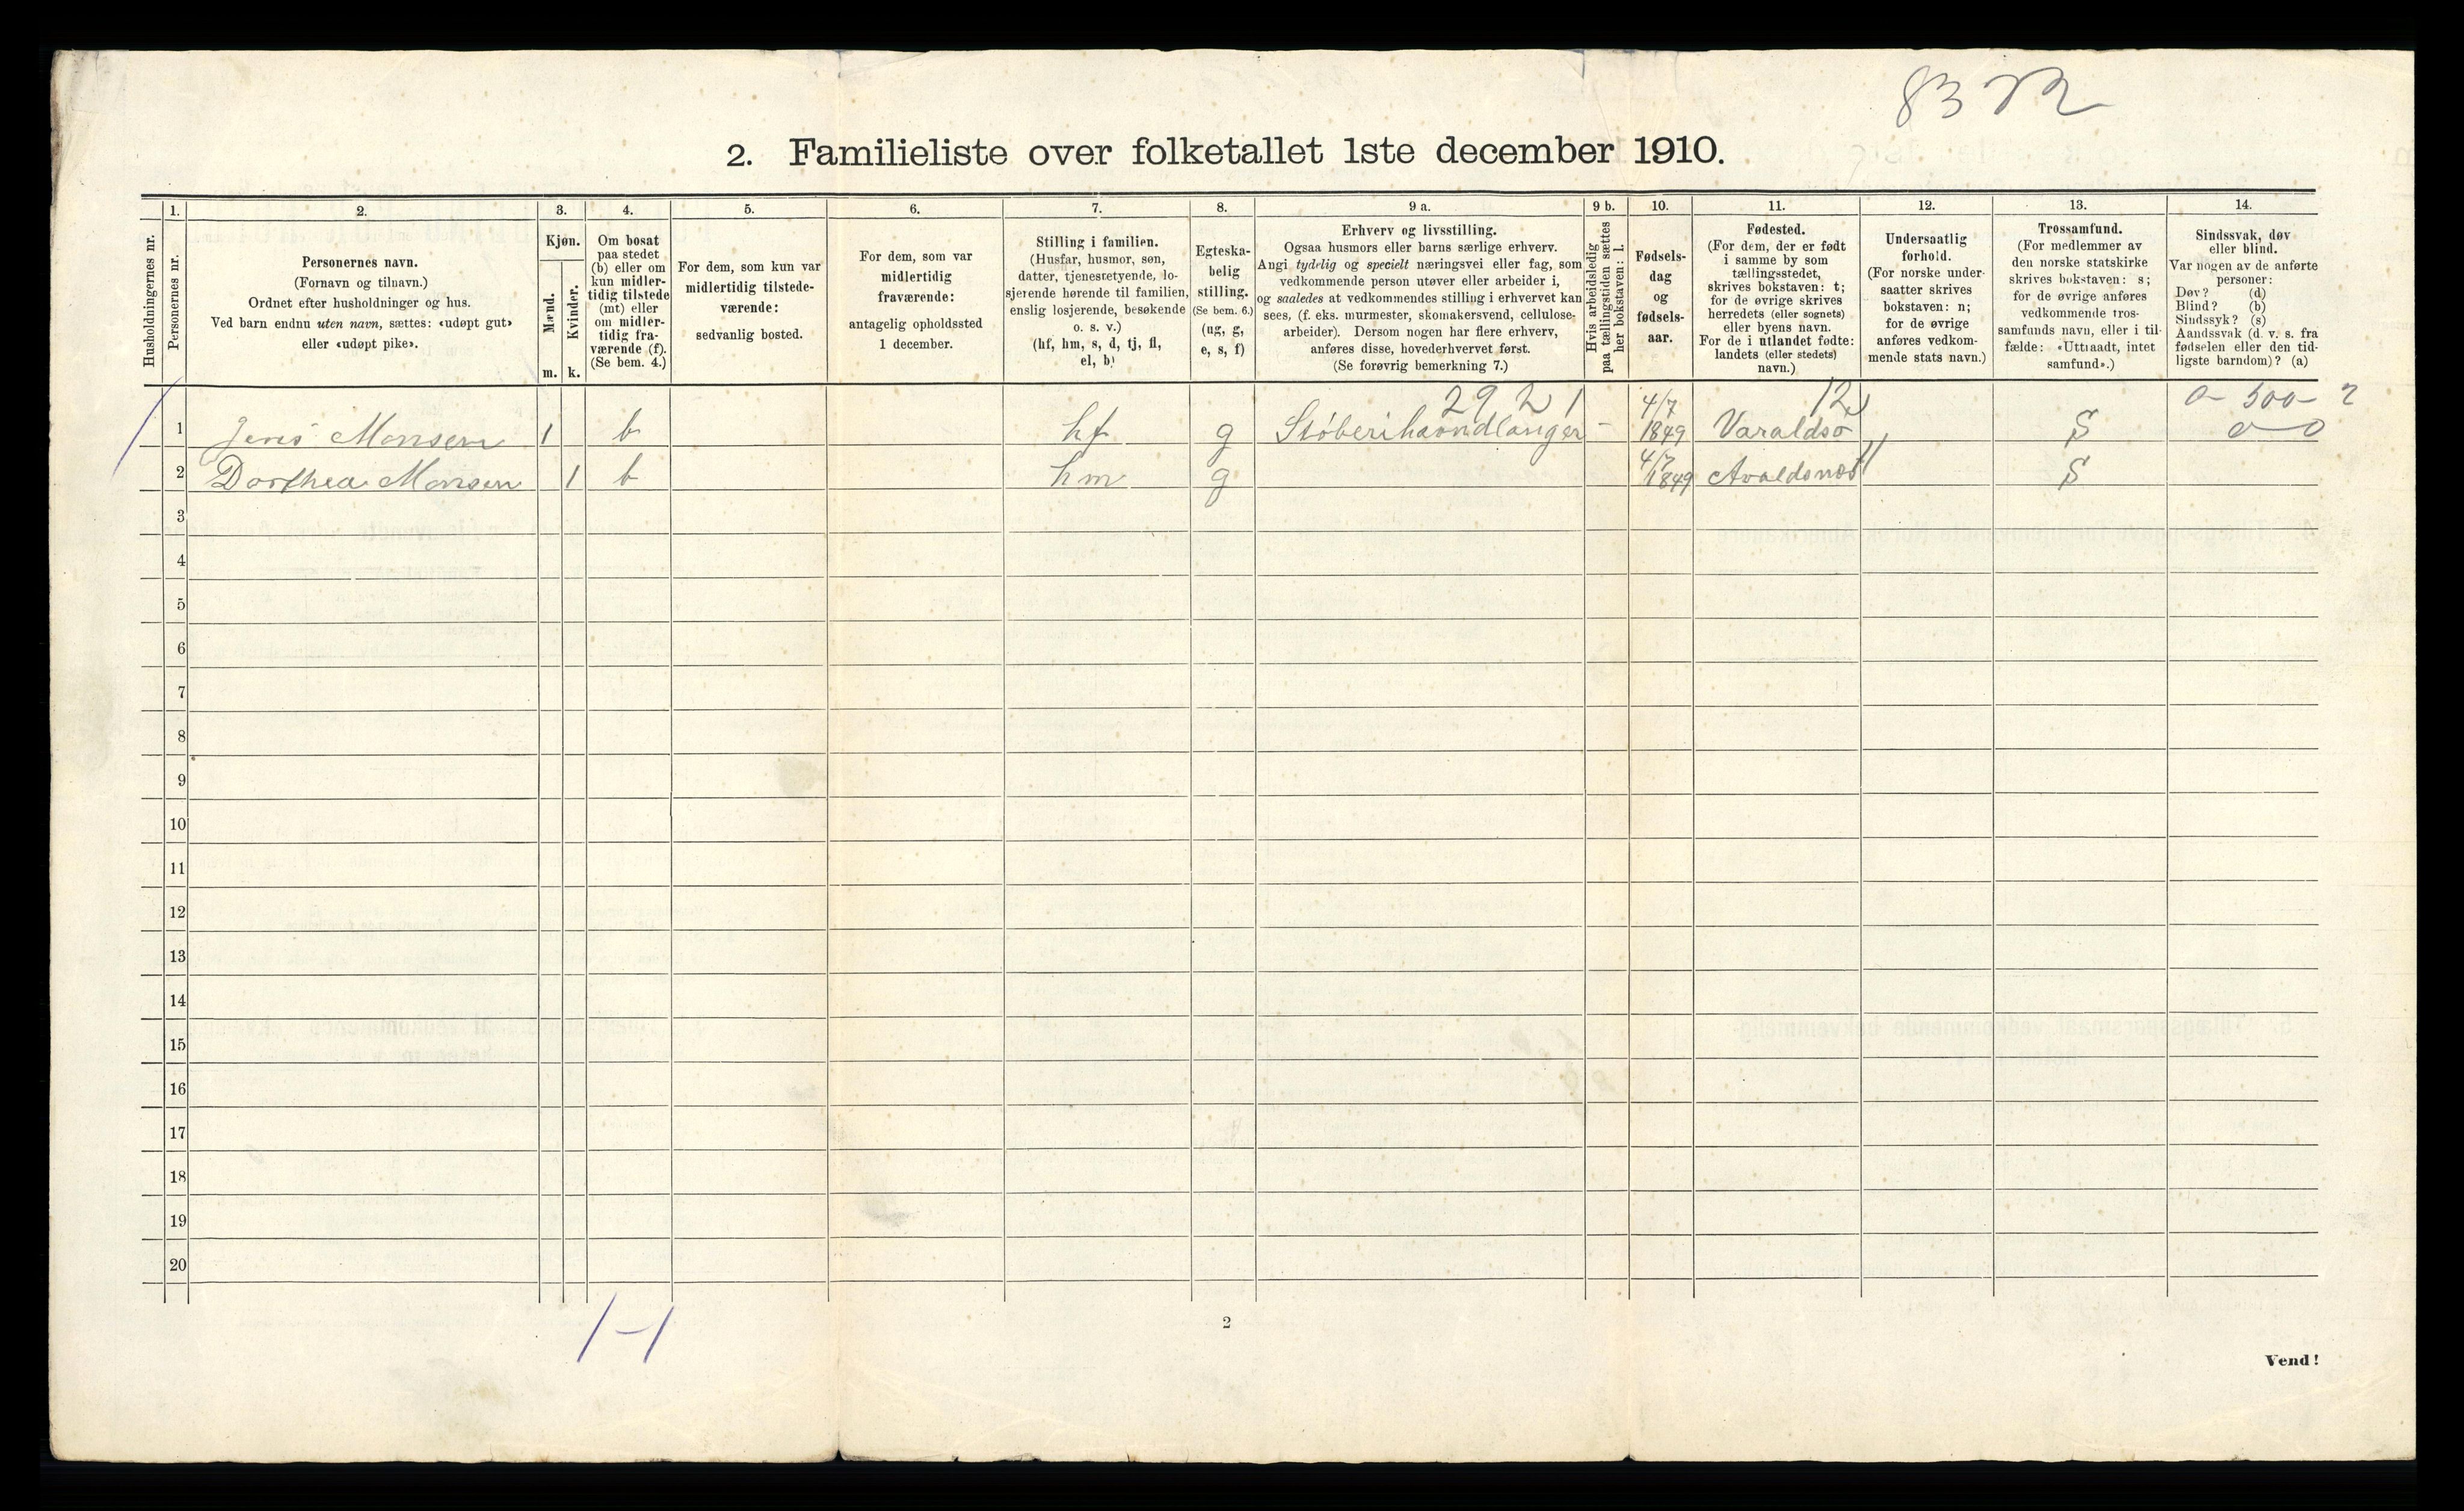 83
2. Familieliste over folketallet 1ste december 1910.
Husholdningernes nr.
1.
Personernes nr.
2.
Personernes navn.
(Fornavn og tilnavn.)
Ordnet efter husholdninger og hus.
Ved barn endnu uten navn, sættes: «udøpt gut»
eller «udøpt pike».
3.
Kjøn.
Mænd.
Kvinder.
m. k.
4.
Om bosat
paa stedet
(b) eller om
kun midler-
tidig tilstede
(mt) eller
om midler-
tidig fra-
værende (f).
(Se bem. 4.)
5.
For dem, som kun var
midlertidig tilstede-
værende:
sedvanlig bosted.
6.
For dem, som var
midlertidig
fraværende:
antagelig opholdssted
1 december.
7.
Stilling i familien.
(Husfar, husmor, søn,
datter, tjenestetyende, lo-
sjerende hørende til familien,
enslig losjerende, besøkende
o. s. v.)
(hf, hm, s, d, tj, fl,
el, b)
8.
Egteska-
belig
stilling.
(Se bem. 6.)
(ug, g,
e, s, f)
9 a.
Erhverv og livsstilling.
Ogsaa husmors eller barns særlige erhverv.
Angi tydelig og specielt næringsvei eller fag, som
vedkommende person utøver eller arbeider i,
og saaledes at vedkommendes stilling i erhvervet kan
sees, (f. eks. murmester, skomakersvend, cellulose-
arbeider). Dersom nogen har flere erhverv,
anføres disse, hovederhvervet først.
(Se forøvrig bemerkning 7.)
9 b.
Hvis arbeidsledig
paa tællingstiden sættes
her bokstaven: l.
10.
Fødsels-
dag
og
fødsels-
aar.
11.
Fødested.
(For dem, der er født
i samme by som
tællingsstedet,
skrives bokstaven: t;
for de øvrige skrives
herredets (eller sognets)
eller byens navn.
For de i utlandet fødte:
landets (eller stedets)
navn.)
12.
Undersaatlig
forhold.
(For norske under-
saatter skrives
bokstaven: n;
for de øvrige
anføres vedkom-
mende stats navn.)
13.
Trossamfund.
(For medlemmer av
den norske statskirke
skrives bokstaven: s;
for de øvrige anføres
vedkommende tros-
samfunds navn, eller i til-
fælde: «Uttraadt, intet
samfund».)
14.
Sindssvak, døv
eller blind.
Var nogen av de anførte
personer:
Døv? (d)
Blind? (b)
Sindssyk? (s)
Aandssvak (d. v. s. fra
fødselen eller den tid-
ligste barndom)? (a)
2921 4/7 12 0-500-2
1 Jens Monsen 1 b hf g Støberihaandlanger - 1849 Varaldsø S
4/7
2 Dorthea Monsen 1 b hm g 1849 Avaldsnæs S
3
4
5
6
7
8
9
10
11
12
13
14
15
16
17
18
19
20
1-1
2
Vend!